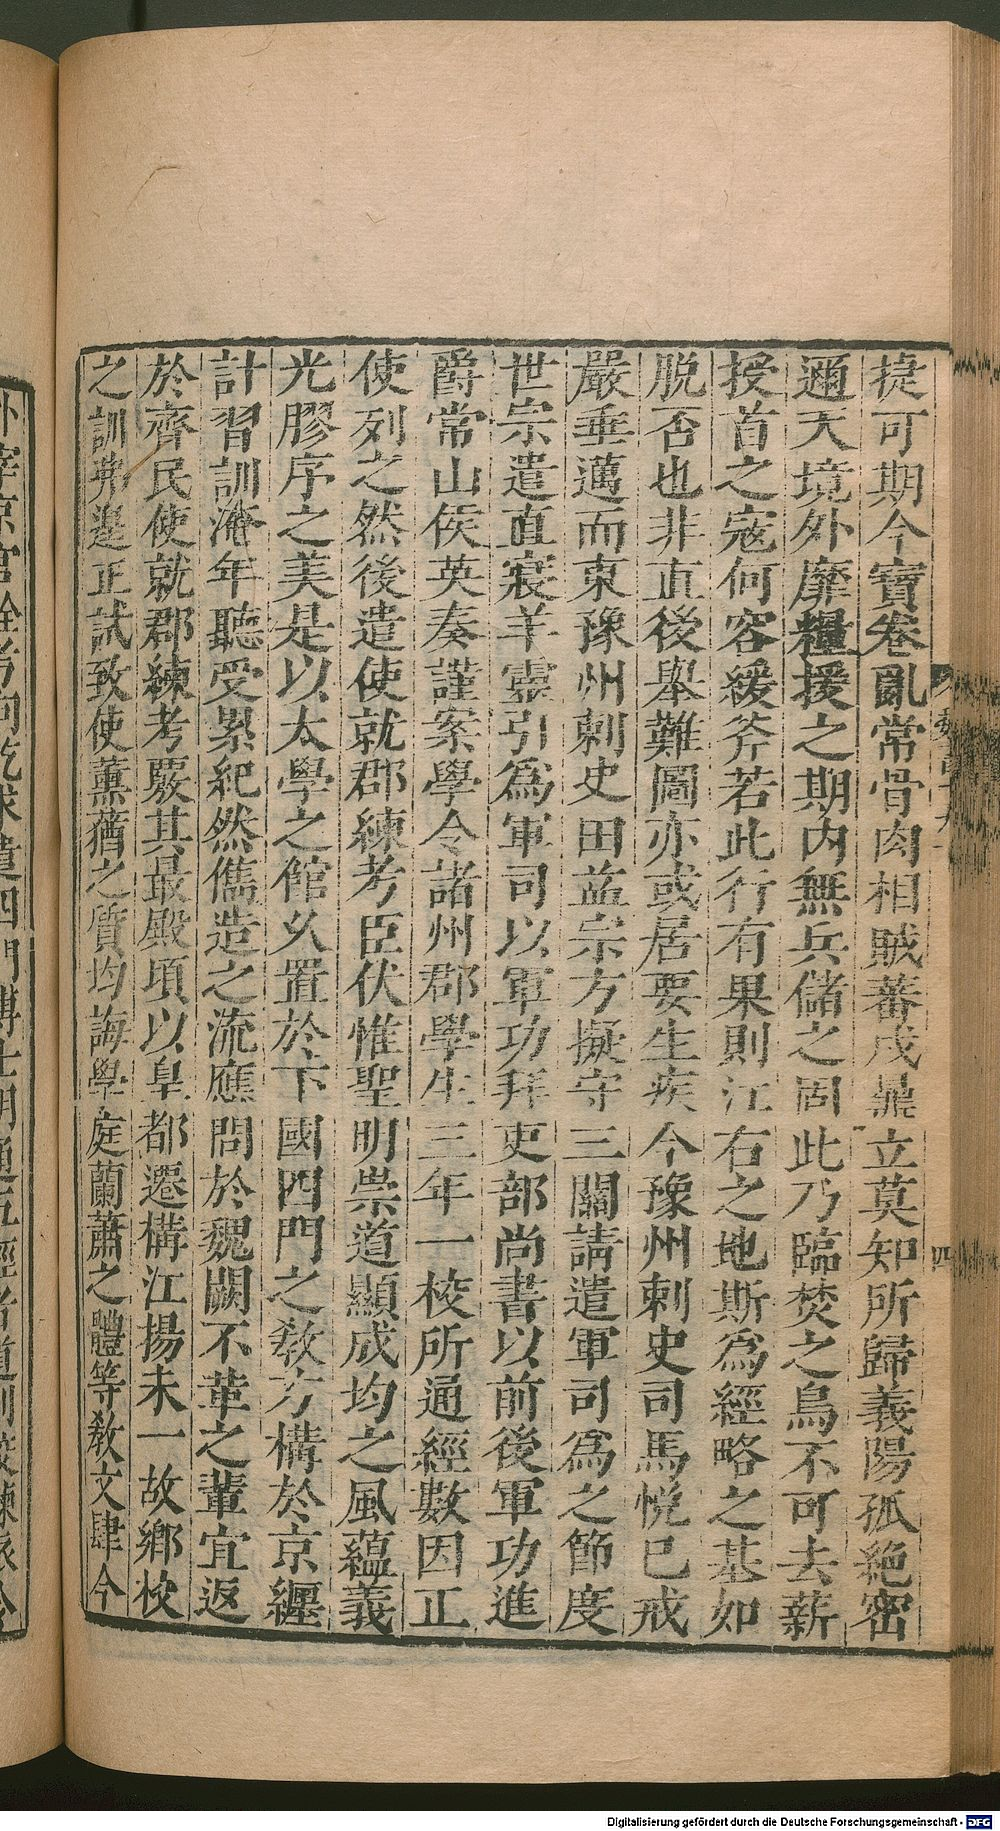 捷可期今寶卷亂常骨肉相賊蕃戍鼎立莫知所歸義陽孤絶密
邇天境外靡糧援之期内無兵儲之固此乃臨焚之鳥不可去薪
授首之寇何容緩斧若此行有果則江右之地斯為經略之基如
脱否也非直後舉難圖亦或居要生疾今豫州刺史司馬悦已戒
嚴垂邁而東豫州刺史田益宗方擬守三關請遣軍司為之節度
世宗遣直寢羊靈引為軍司以軍功拜吏部尚書以前後軍功進
爵常山侯英奏謹案學令諸州郡學生三年一校所通經數因正
使列之然後遣使就郡練考臣伏惟聖明崇道顯成均之風蘊義
光膠序之美是以太學之館久置於下國四門之教方構於京纏
計習訓淹年聽受累紀然儁造之流應問於魏闕不革之輩宜返
於齊民使就郡練考覈其最殿頃以皇都遷構江揚未一故鄉校
之訓弗遑正試致使薰蕕之質均誨學庭蘭蕭之體等教文肆今
四
外宰京官銓考向訖求遣四門博士明通五經者道別校練依令
Digitalisierung gefördert durch die Deutsche Forschungsgemeinschaft - DFG